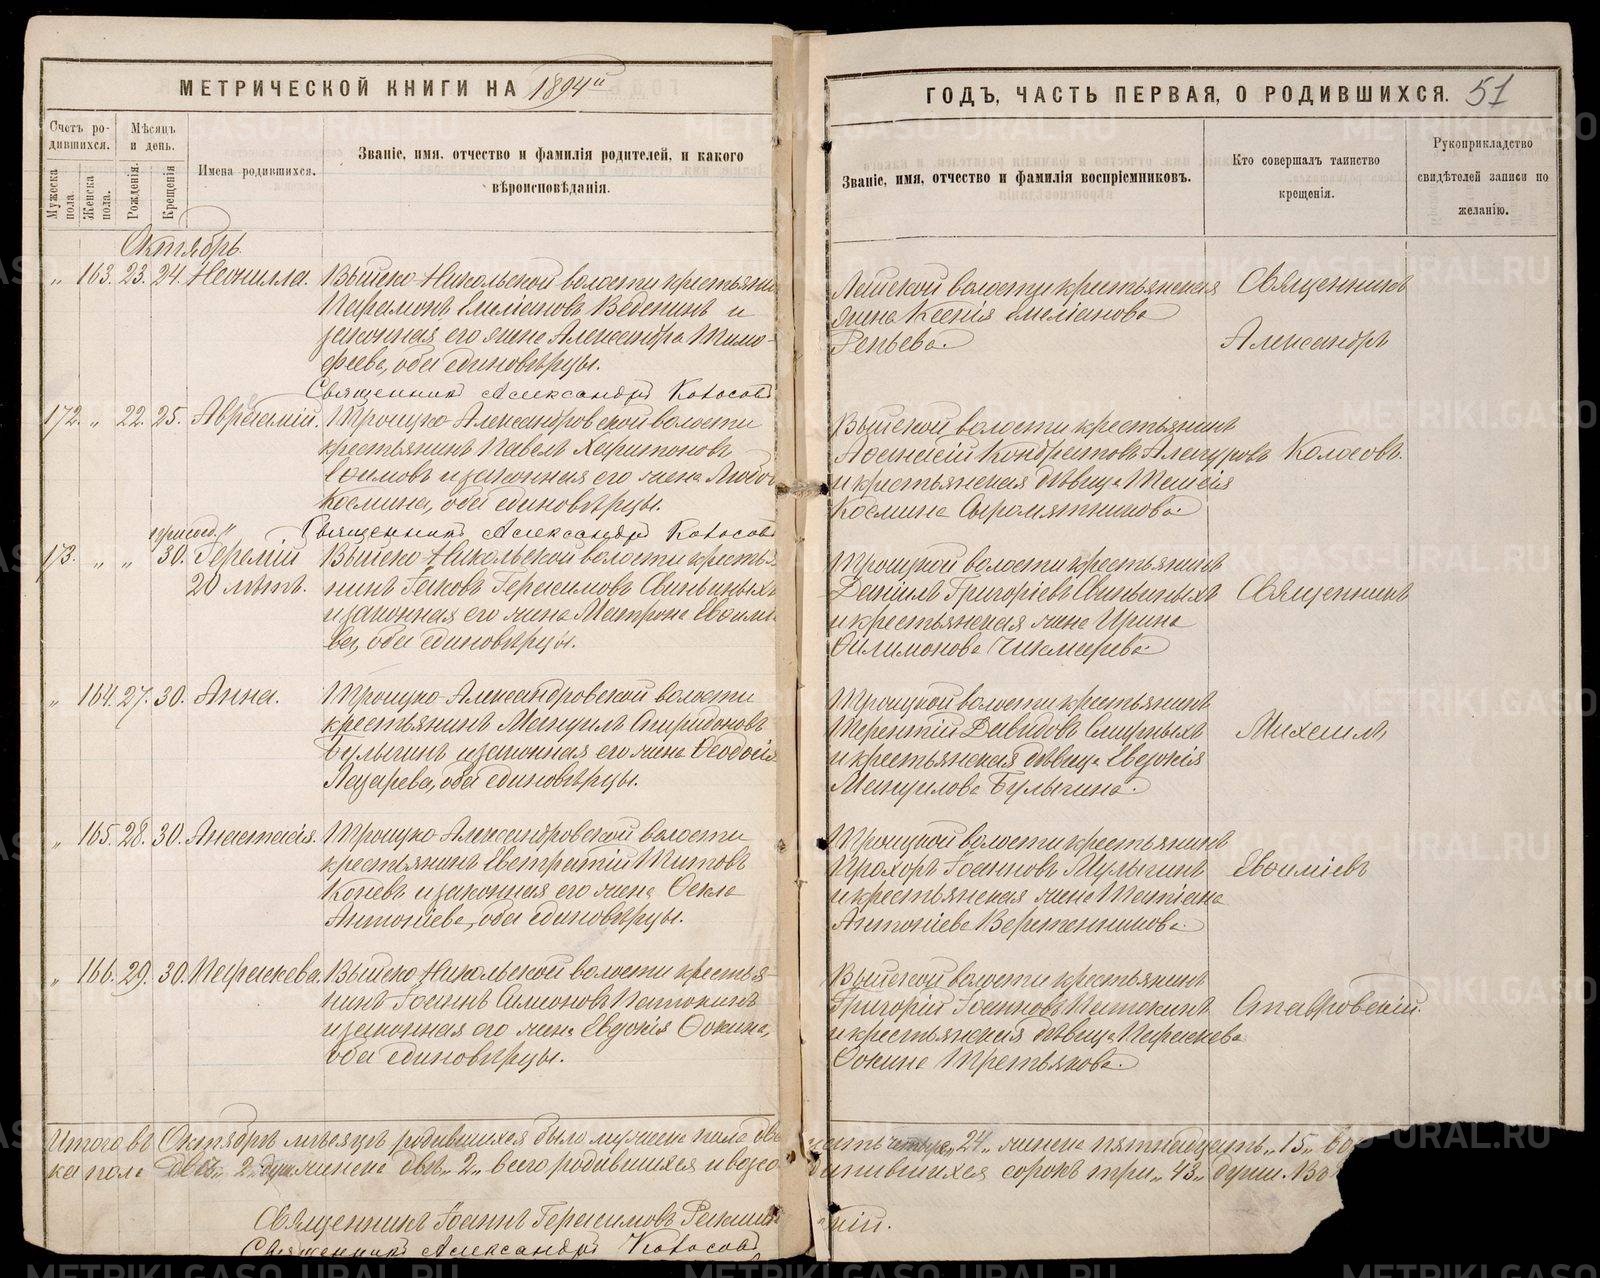 МЕТРИЧЕСКОЙ КНИГИ НА 1894й
ГОДЪ, ЧАСТЬ ПЕРВАЯ, О РОДИВШИХСЯ. 51
Счетъ родившихся.
Мужеска пола
Женска пола.
Мѣсяцъ и день.
Рожденія.
Крещенія
Имена родившихся.
Званіе, имя, отчество и фамилія родителей, и какого
вѣроисповѣданія.
Званіе, имя, отчество и фамилія воспріемниковъ.
Кто совершалъ таинство
крещенія.
Рукоприкладство
свидѣтелей записи по
желанію.
Октябрь.
„ 163. 23. 24. Неонилла. Выйско-Никольской волости крестьянинъ
Парамонъ Емиліановъ Веденинъ и
законная его жена Александра Тимо-
феева, оба единовѣрцы.
Священникъ Александръ Колосовъ
Лайской волости крестьянская
жена Ксенія Емеліанова
Репьева.
Священникъ
Александръ
172. „ 22. 25. Аврамій. Троицко-Александровской волости
крестьянинъ Павелъ Харитоновъ
и законная его жена
Космина, оба единовѣрцы.
Священникъ Александръ Колосовъ
Выйской волости крестьянинъ
Аѳанасій Кондратовъ
и крестьянская дѣвица Таисія
Космина Сыромятникова.
Колосовъ.
присоед.
173. „ „ 30. Іеремій
20 лѣтъ.
Выйско-Никольской волости крестья-
нинъ Іаковъ Герасимовъ Свиньиныхъ
и законная его жена Матрона Евфимі-
ева, оба единовѣрцы.
Троицкой волости крестьянинъ
Даніилъ Григоріевъ Свиньиныхъ
и крестьянская жена Ирина
Филимонова Чикмарева.
Священникъ
„ 164. 27. 30. Анна. Троицко-Александровской волости
крестьянинъ Мануилъ Спиридоновъ
Булыгинъ и законная его жена Ѳеодосія
Лазарева, оба единовѣрцы.
Троицкой волости крестьянинъ
Терентій Давидовъ
и крестьянская дѣвица Евдокія
Мануилова Булыгина.
Михаилъ
„ 165. 28. 30. Анастасія. Троицко-Александровской волости
крестьянинъ Евстратій Титовъ
Коневъ и законная его жена Ѳекла
Антоніева, оба единовѣрцы.
Троицкой волости крестьянинъ
Прохоръ Іоанновъ Мулыгинъ
и крестьянская жена Татіана
Антоніева Веретенникова.
Евѳиміевъ
„ 166. 29. 30. Параскева. Выйско-Никольской волости крестья-
нинъ Іоаннъ Симеоновъ Патокинъ
и законная его жена Евдокія Ѳокина,
оба единовѣрцы.
Выйской волости крестьянинъ
Григорій Іоанновъ Патокинъ
и крестьянская дѣвица Параскева
Ѳокина Третьякова.
Ставровскій.
Итого въ Октябрѣ мѣсяцѣ родившихся было мужеска пола двадцать четыре „24„ женска пятнадцать „15„
ка пола два „2„ женска двѣ „2„ всего родившихся и возсоединившихся сорокъ три „43„ души.
Священникъ Іоаннъ Герасимовъ
Священникъ Александръ Колосовъ
METRIKI.GASO-URAL.RU